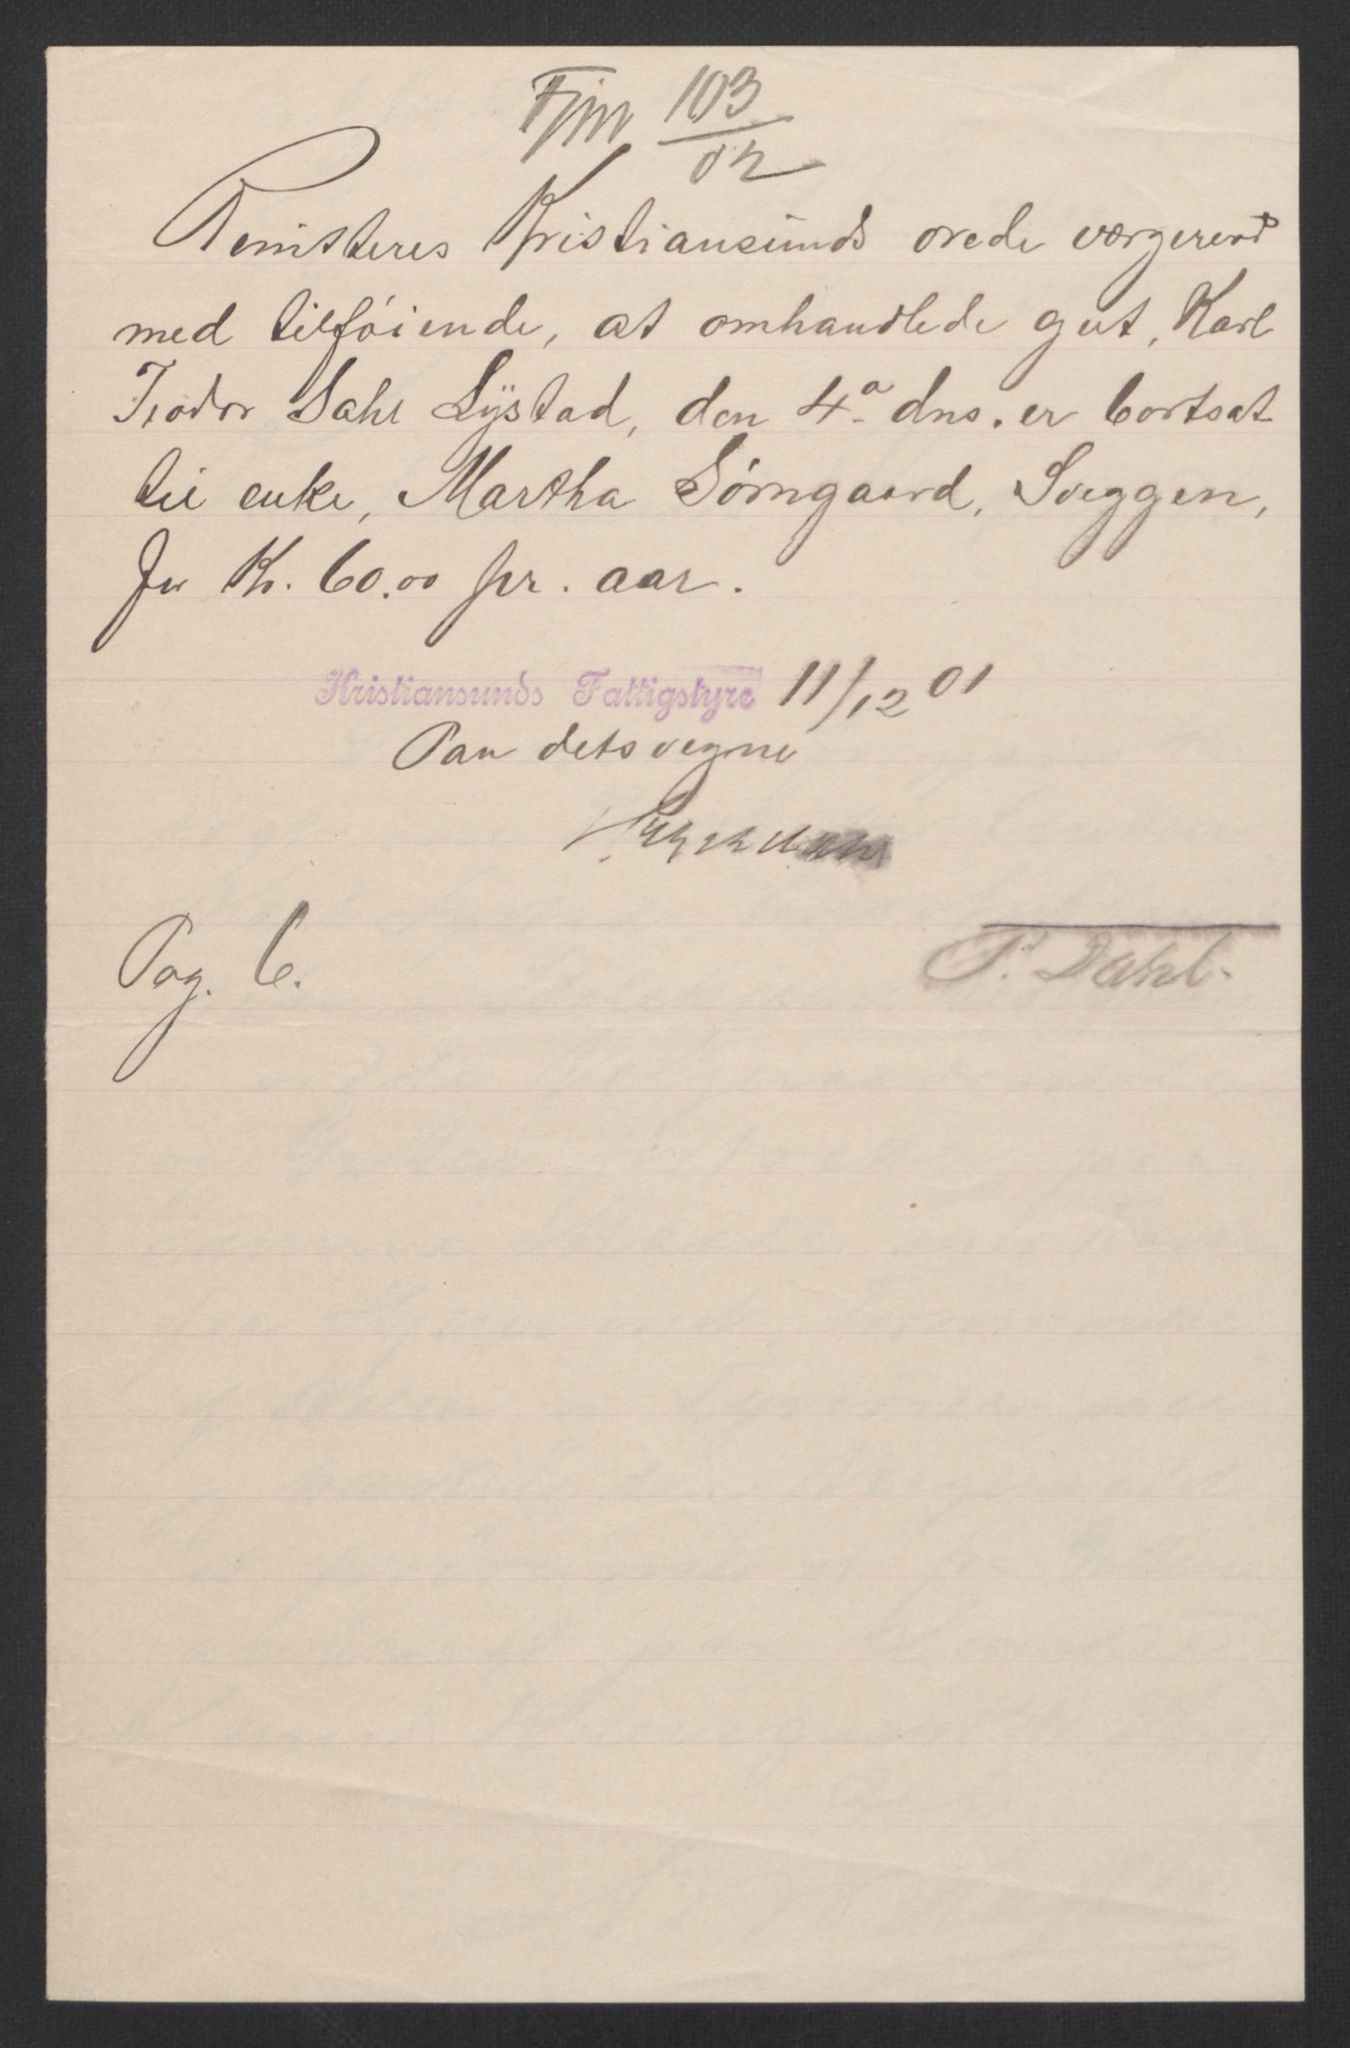 Fjm 103/02
Remitteres Kristiansunds ærede værgeraad
med tilføiende, at omhandlede gut, Karl
Teodor Dahl Lystad, den 4.a dns. er bortsat
til enke, Martha Sörngaard, Sveggen,
for Kr. 60.00 pr. aar.
Kristiansunds Fattigstyre 11/12 01
Paa dets vegne
Pag. 6.
P. Dahl.